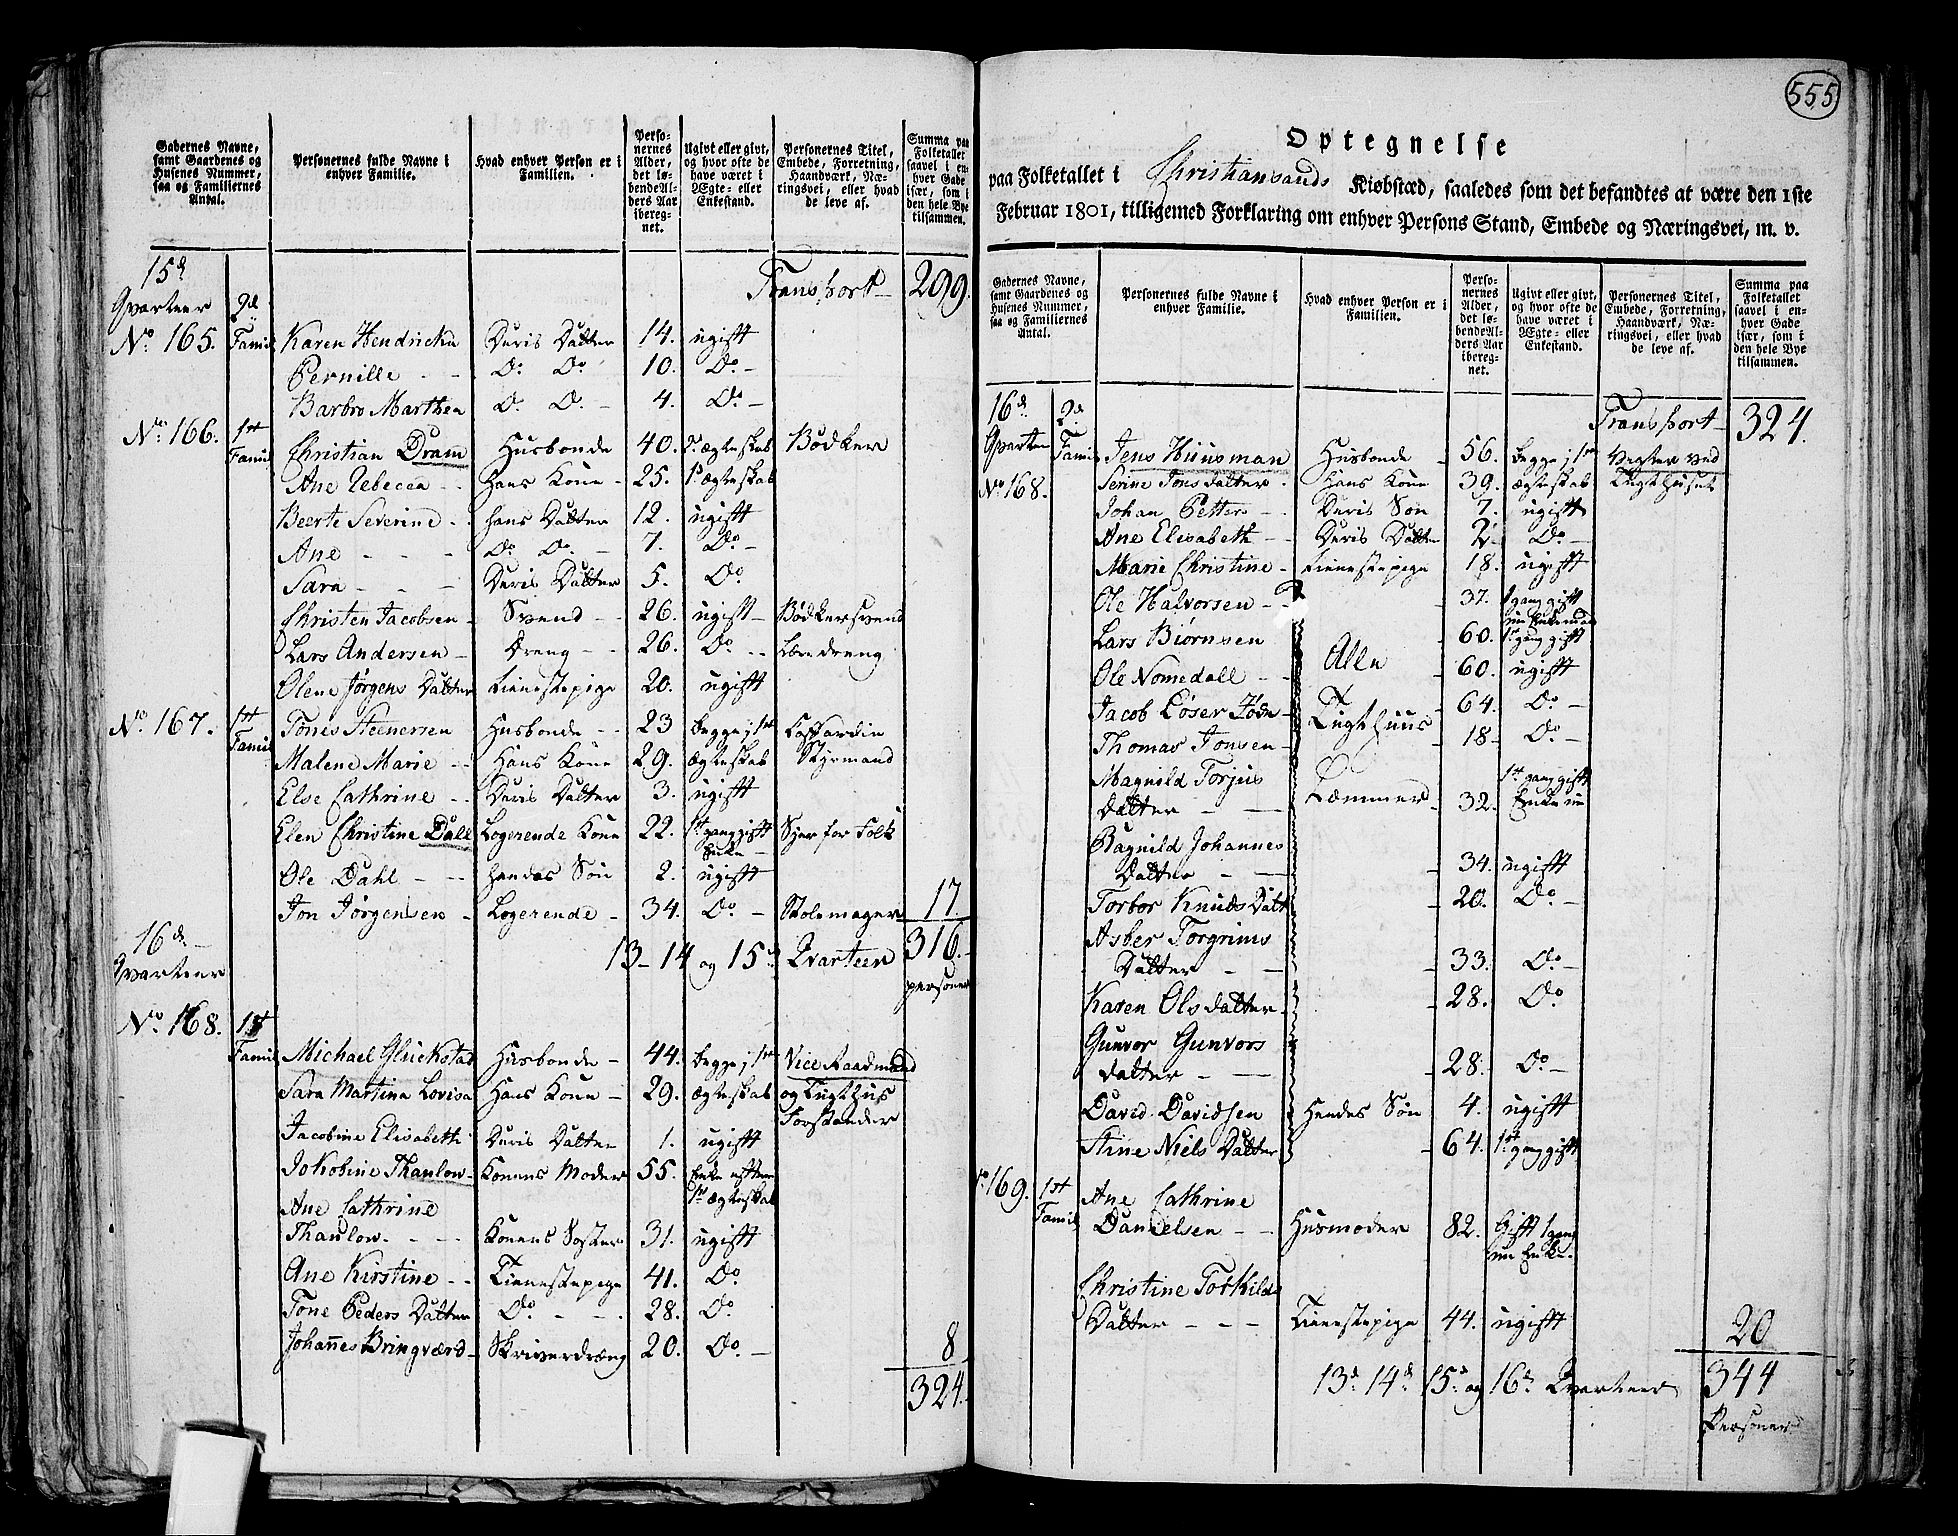 Gadernes Navne, samt Gaardenes og Husenes Nummer, saa og Familiernes Antal.
Personernes fulde Navne i enhver Familie.
Hvad enhver Person er i Familien.
Personernes Alder, det løbende Alders Aar iberegnet.
Ugivt eller givt, og hvor ofte de have været i Ægte- eller Enkestand.
Personernes Titel, Embede, Forretning, Haandværk, Næringsvei, eller hvad de leve af.
Summa paa Folketallet saavel i enhver Gade især, som i den hele Bye tilsammen.
15d Transport 299.
Qvarteer 2d
No. 165. Famil Karen Hendricka Deris Datter 14. ugift
Pernille - - Do Do 10. Do -
Barbro Marthea Do Do - 4. Do -
No 166. 1st
Famil Christian Dram Husbonde 40. 2' ægteskab Bødker
Ane Rebecca - Hans Kone - 25. 1' ægteskab
Beerte Severine - hans Datter 12. ugift
Ane - - - Do Do - 7. Do -
Sara - - - Deris Datter 5. Do
Christen Jacobsen - Svend - - 26. ugift - Bødkersvend
Lars Andersen - Dreng - - 26. Do - - Læredreng
Olene Jørgens Datter Tienestepige 20. ugift
No 167. 1st Tønis Steenersen Husbonde - - 23 begge j 1ste Coffardie
Famil Malene Marie - Hans Kone 29. ægteskab Styrmand
Else Cathrine - - Deris Datter 3. ugift
Elen Christine Dall Logerende Kone 22. 1st gang gift Syer for Folk
Enke -
Ole Dahl - - hendes Søn 2. ugift
Jon Jørgensen - Logerende - 34. Do - Stolemager 17.
16d - 13 - 14 og 15d Qvarteer 316. -
Qvarteer personer
No. 168. 1st
Famil Michael Gluckstad Husbonde - 44. begge j 1ste Vice Raadmand
Sara Martina Lovisa Hans Kone - 29. ægteskab og Tugthus
Forstander
Jacobine Elisabeth Deris Datter 1. ugift
Jokobine Thaulow - Konens Moder 55. Enke efter
1ste Ægteskab
Ane Cathrine
Thaulow. - - Konens Søster 31. ugift
Ane Kirstine - - Tienestepige 41. Do
Tone Peders Datter Do - - - 28. Do
Johannes Bringværd - Skriverdræng 20. Do - 8
324. -
555
Optegnelse
paa Folketallet i Christiansands Kiøbstæd, saaledes som det befandtes at være den 1ste
Februar 1801, tilligemed Forklaring om enhver Persons Stand, Embede og Næringsvei, m. v.
Gadernes Navne, samt Gaardenes og Husenes Nummer, saa og Familiernes Antal.
Personernes fulde Navne i enhver Familie.
Hvad enhver Person er i Familien.
Personernes Alder, det løbende Alders Aar iberegnet.
Ugivt eller givt, og hvor ofte de have været i Ægte- eller Enkestand.
Personernes Titel, Embede, Forretning, Haandværk, Næringsvei, eller hvad de leve af.
Summa paa Folketallet saavel i enhver Gade især, som i den hele Bye tilsammen.
16d. 2d Transport - 324.
Qvarteer Famil Jens Huusman Husbonde - 56. begge j 1ste Vegter ved
No 168. Serine Jons datter - Hans Kone 39. ægteskab Tugthuset
Johan Petter - - Deris Søn 7. ugift
Ane Elisabeth - - Deris Datter 2. Do -
Marie Christine - Tienestepige 18. ugift
Ole Halvorsen - - 37. 1 gang gift
nu Enkemand
Lars Biørnsen - 60. 1' gang gift
Ole Nomedall - - Alle - 60. ugift
Jacob Løser Jøde - Tugthuus 64. Do -
Thomas Jonsen - 18. Do -
Magnild Torjus Læmmer 1st gang gift
Datter - - 32. Enke nu
Ragnild Johannes
Datter - - 34. ugift
Torbor Knuds Datt - 20. Do -
Asber Torgrims
Datter - - - 33. Do -
Karen Olsdatter - - 28. Do
Gunvor Gunvors
datter - - - 28. Do -
David Davidsen Hendes Søn 4. ugift
Stine Niels Datter - 64. 1st gang gift
No 169. 1st Ane Cathrine
Famil Danielsen - - Husmoder 82. Gift 1 gang
nu Enke.
Christine Torkilds
Datter - - - Tienestepige 44. ugift 20
13d 14d 15d og 16d Qvarteer 344
Personer